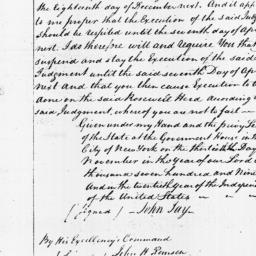 the Eighteenth day of December next. And it app
to me proper that the Execution of the said Judg
should be respited until the seventh day of Apr
next. I do therefore will and require You that
suspend and stay the Execution of the said
Judgment until the said seventh Day of Apr
next And that you then cause Execution to be
done on the said Roosevelt Herd According to
said Judgment, whereof you are not to fail —
Given under my Hand and the privy Se
of the State at the Government House in the
City of New York on the thirtieth Day
November in the Year of our Lord
thousand seven Hundred and Nine
And in the twentieth Year of the Indepen
of the United States —
[Signed] — John Jay —
By His Excellency's Command
John H Remsen